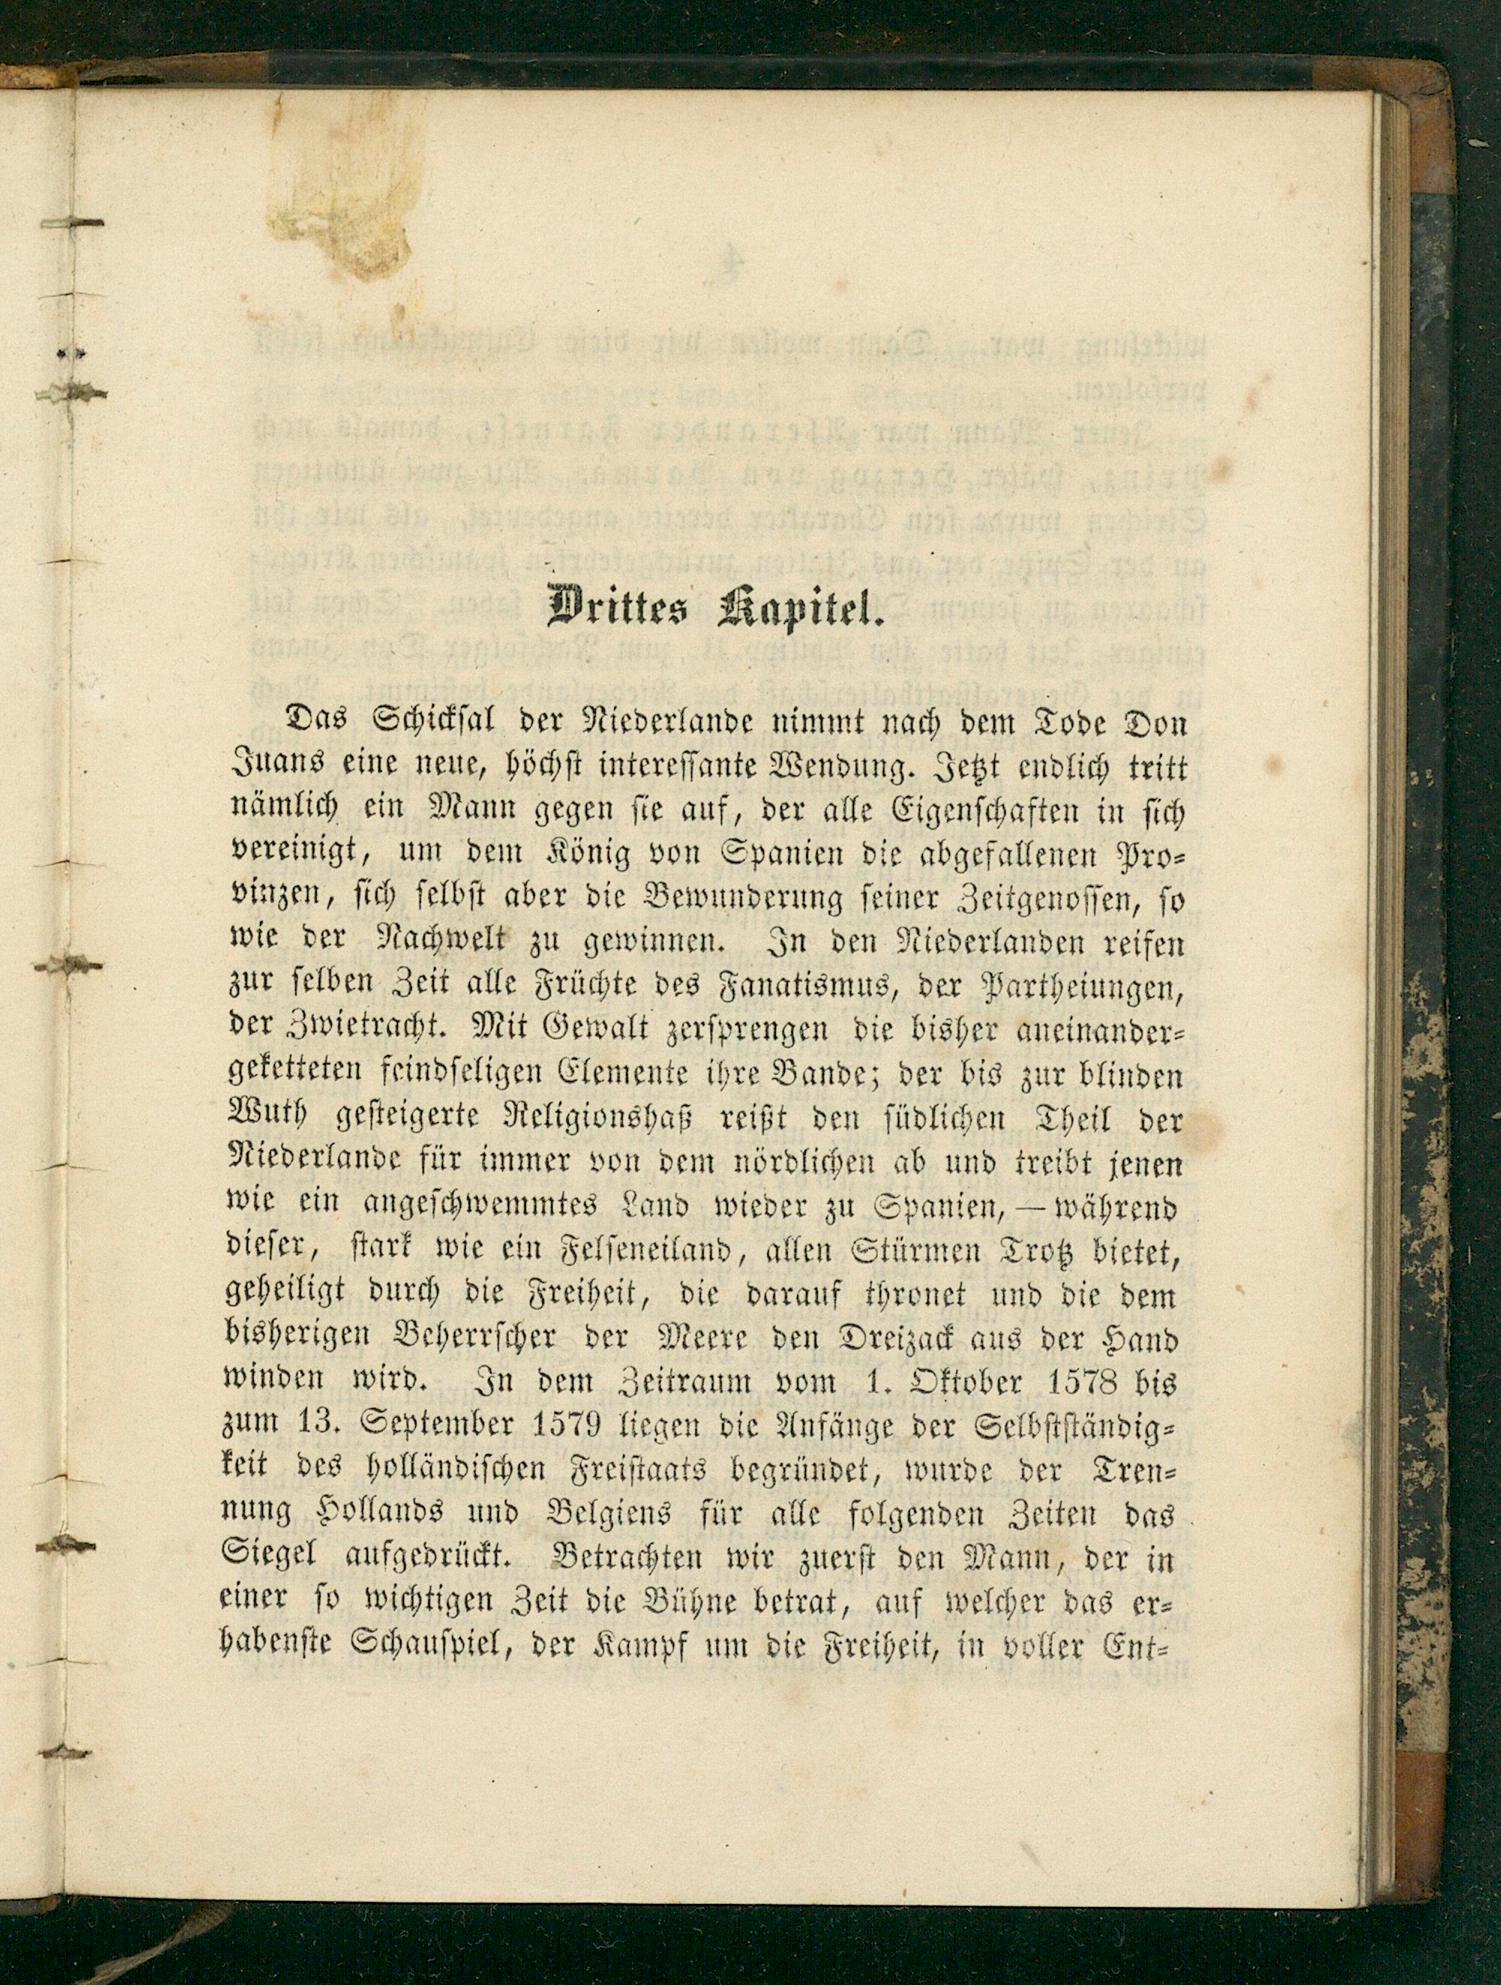 Drittes Kapitel.
Das Schicksal der Niederlande nimmt nach dem Tode Don
Juans eine neue, höchst interessante Wendung. Jetzt endlich tritt
nämlich ein Mann gegen sie auf, der alle Eigenschaften in sich
vereinigt, um dem König von Spanien die abgefallenen Pro-
vinzen, sich selbst aber die Bewunderung seiner Zeitgenossen, so
wie der Nachwelt zu gewinnen. In den Niederlanden reifen
zur selben Zeit alle Früchte des Fanatismus, der Partheiungen,
der Zwietracht. Mit Gewalt zersprengen die bisher aneinander-
geketteten feindseligen Elemente ihre Bande; der bis zur blinden
Wuth gesteigerte Religionshaß reißt den südlichen Theil der
Niederlande für immer von dem nördlichen ab und treibt jenen
wie ein angeschwemmtes Land wieder zu Spanien, — während
dieser, stark wie ein Felseneiland, allen Stürmen Trotz bietet,
geheiligt durch die Freiheit, die darauf thronet und die dem
bisherigen Beherrscher der Meere den Dreizack aus der Hand
winden wird. In dem Zeitraum vom 1. Oktober 1578 bis
zum 13. September 1579 liegen die Anfänge der Selbstständig-
keit des holländischen Freistaats begründet, wurde der Tren-
nung Hollands und Belgiens für alle folgenden Zeiten das
Siegel aufgedrückt. Betrachten wir zuerst den Mann, der in
einer so wichtigen Zeit die Bühne betrat, auf welcher das er-
habenste Schauspiel, der Kampf um die Freiheit, in voller Ent-